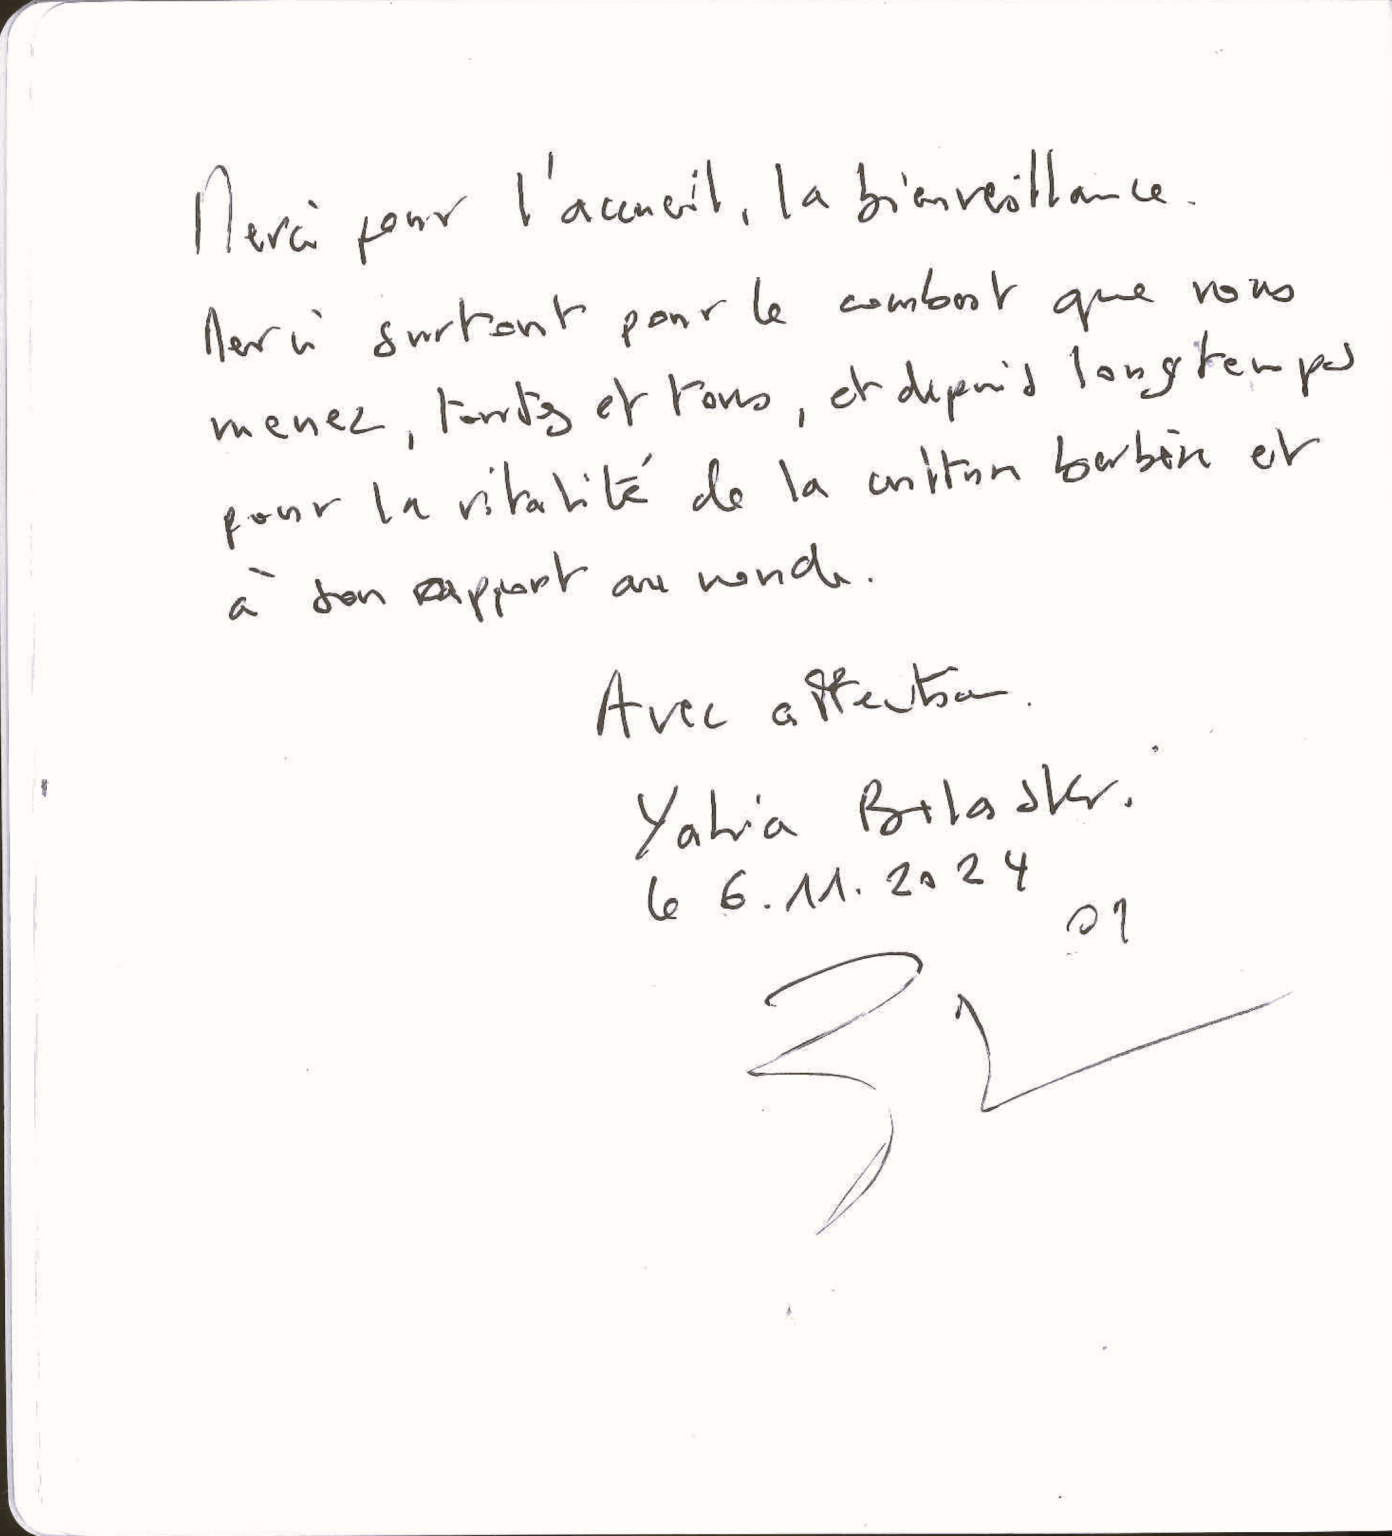 Merci pour l'accueil, la bienveillance.
Merci surtout pour le combat que vous
menez, toutes et tous, et depuis longtemps
pour la vitalité de la culture berbère et
à son rapport au monde.
Avec affection.
Yahia Belaskri.
le 6.11.2024